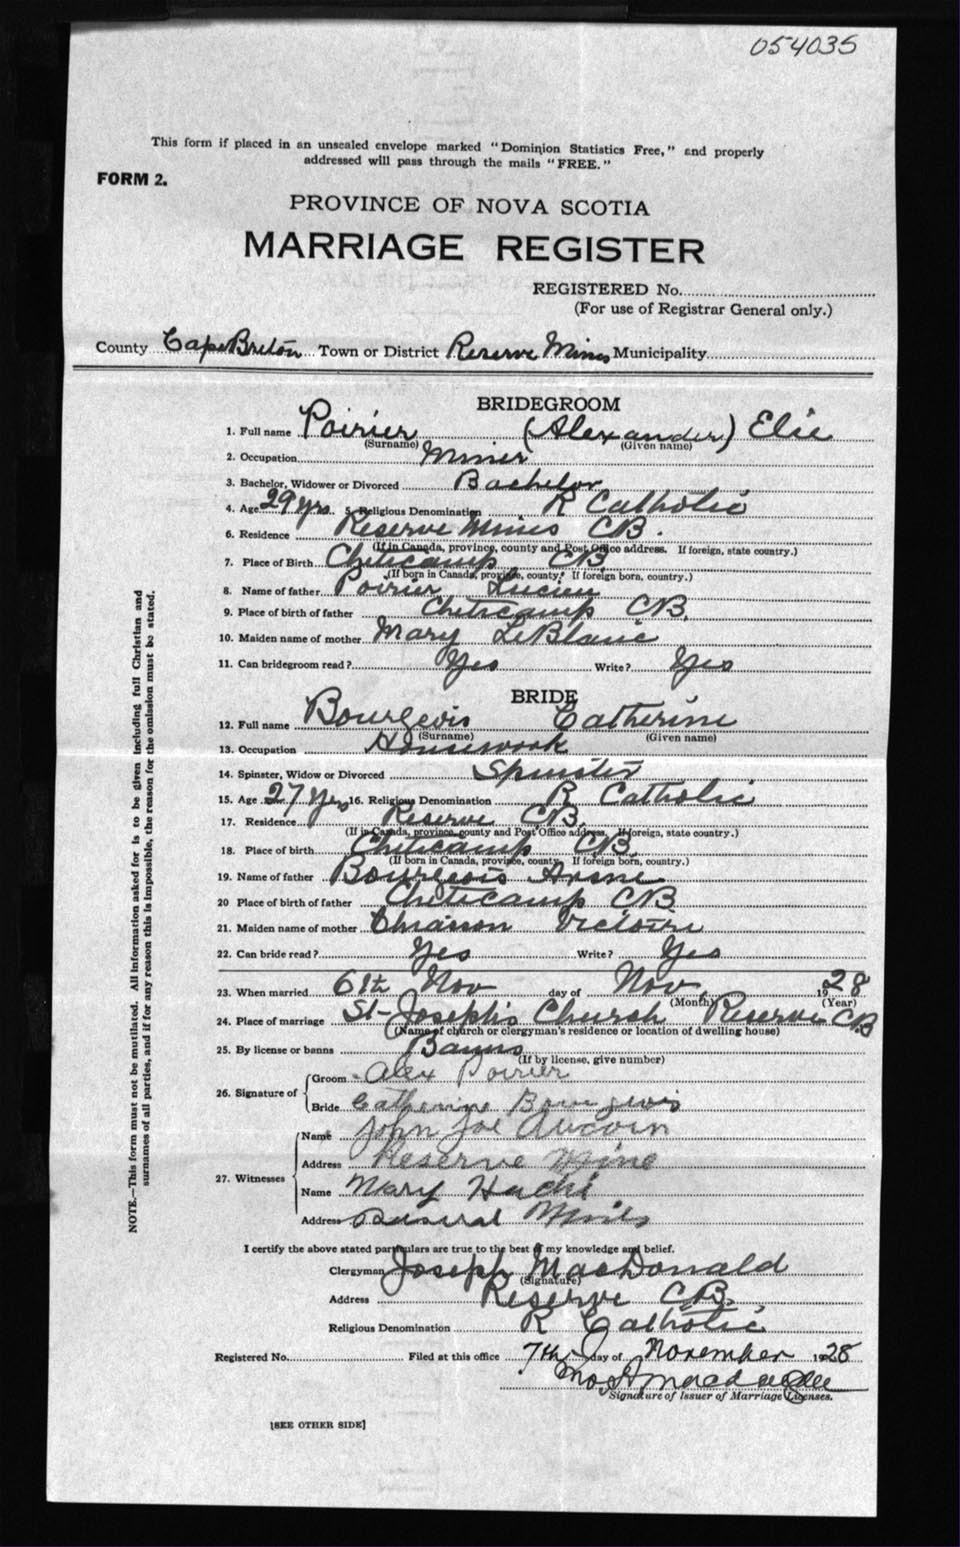 054035
This form if placed in an unsealed envelope marked "Dominion Statistics Free," and properly
addressed will pass through the mails "FREE."
FORM 2.
PROVINCE OF NOVA SCOTIA
MARRIAGE REGISTER
REGISTERED No.
(For use of Registrar General only.)
County Cape Breton Town or District Reserve Mines Municipality
BRIDEGROOM
1. Full name Poirier (Alexander) Elie
(Surname) (Given name)
2. Occupation Miner
3. Bachelor, Widower or Divorced Bachelor
4. Age 29 yrs. 5. Religious Denomination R Catholic
6. Residence Reserve Mines CB.
(If in Canada, province, county and Post Office address. If foreign, state country.)
7. Place of Birth Cheticamp CB
(If born in Canada, province, county. If foreign born, country.)
8. Name of father Poirier Lucien
9. Place of birth of father Cheticamp CB.
10. Maiden name of mother Mary LeBlanc
11. Can bridegroom read? Yes Write? Yes
BRIDE
12. Full name Bourgeois Catherine
(Surname) (Given name)
13. Occupation Housework
14. Spinster, Widow or Divorced Spinster
15. Age 27 yrs 16. Religious Denomination R Catholic
17. Residence Reserve CB.
(If in Canada, province, county and Post Office address. If foreign, state country.)
18. Place of birth Cheticamp CB
(If born in Canada, province, county. If foreign born, country.)
19. Name of father Bourgeois
20 Place of birth of father Cheticamp CB
21. Maiden name of mother Chiasson Victoire
22. Can bride read? Yes Write? Yes
23. When married 6th Nov day of Nov. 1928
(Month) (Year)
24. Place of marriage St-Joseph's Church Reserve CB
(Name of church or clergyman's residence or location of dwelling house)
25. By license or banns Banns
(If by license, give number)
26. Signature of Groom Alex Poirier
Bride Catherine Bourgeois
27. Witnesses Name John Joe Aucoin
Address Reserve Mine
Name Mary Hache
Address Mines
I certify the above stated particulars are true to the best of my knowledge and belief.
Clergyman Joseph MacDonald
(Signature)
Address Reserve CB.
Religious Denomination R Catholic
Registered No. Filed at this office 7th day of November 1928
Signature of Issuer of Marriage Licenses.
[SEE OTHER SIDE]
NOTE.—This form must not be mutilated. All information asked for is to be given including full Christian and
surnames of all parties, and if for any reason this is impossible, the reason for the omission must be stated.